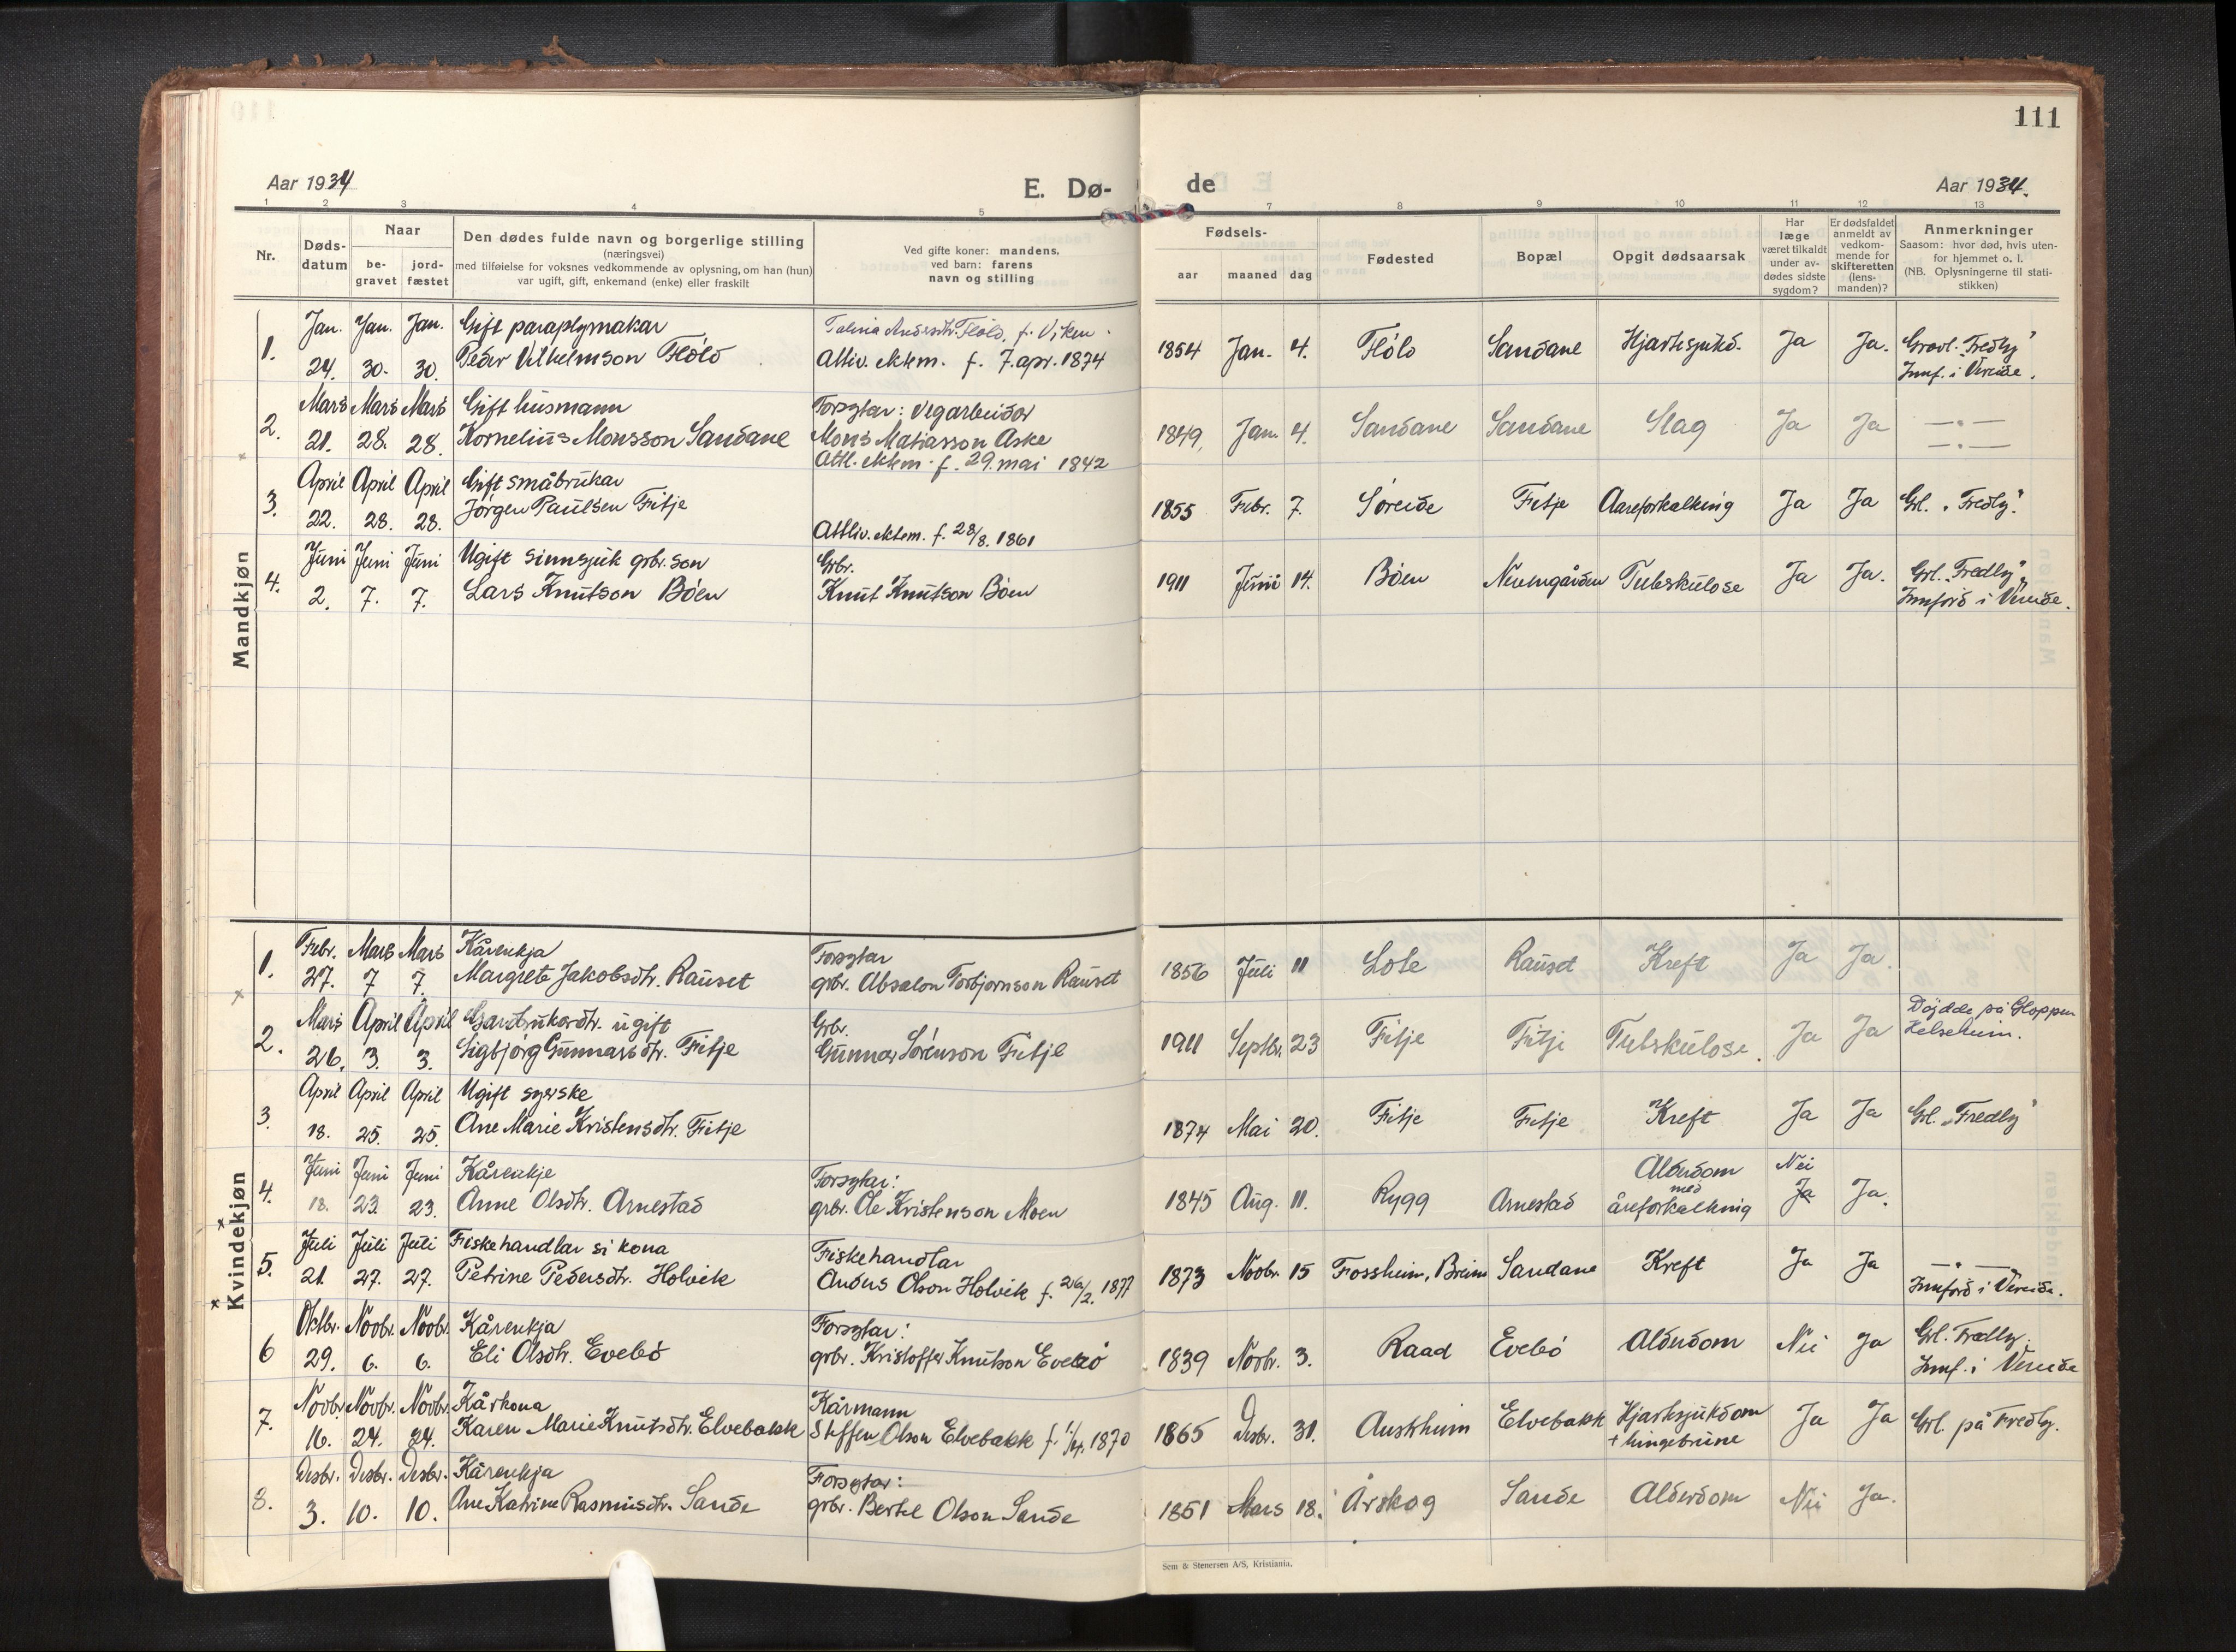 111
Aar 1934
E. Dø-
de
Aar 1934.
1 2 3 4 5 7 8 9 10 11 12 13
Nr.
Døds-
datum
Naar
be-
gravet
jord-
fæstet
Den dødes fulde navn og borgerlige stilling
(næringsvei)
med tilføielse for voksnes vedkommende av oplysning, om han (hun)
var ugift, gift, enkemand (enke) eller fraskilt
Ved gifte koner: mandens,
ved barn: farens
navn og stilling
Fødsels-
aar
maaned
dag
Fødested
Bopæl
Opgit dødsaarsak
Har
læge
været tilkaldt
under av-
dødes sidste
sygdom?
Er dødsfaldet
anmeldt av
vedkom-
mende for
skifteretten
(lens-
manden)?
Anmerkninger
Saasom: hvor død, hvis uten-
for hjemmet o. l.
(NB. Oplysningerne til stati-
stikken)
Mandkjøn
1. Jan. 24. Jan. 30. Jan. 30.
Gift paraplymakar
Peder Vilhelmson Flölo
Andersdtr. Flölo, f. Viken.
Attliv. ektem. f. 7. apr. 1874
1854 Jan. 4. Flölo Sandane Hjartesjukd. Ja Ja.
Gravl. "Fredly"
Innf. i Vereide.
2. Mars 21. Mars 28. Mars 28.
Gift husmann
Kornelius Monsson Sandane
Forsytar: vegarbeidar
Mons Matiasson Aske
Attl. ektem. f. 29. mai 1842
1849, Jan. 4. Sandane Sandane Slag Ja Ja
—:—
—:—
3. April 22. April 28. April 28.
Gift småbrukar
Jörgen Paulsen Fitje
Attliv. ektem. f. 28/8. 1861
1855 Febr. 7. Söreide Fitje Aareforkalkning Ja Ja Grl. "Fredly".
4. Juni 2. Juni 7. Juni 7.
Ugift sinnsjuk grbr. son
Lars Knutson Böen
Grbr.
Knut Knutson Böen
1911 Juni 14. Böen Neumgården Tuberkulose Ja Ja.
Grl. "Fredly",
Innförd i Vereide.
Kvindekjøn
1. Febr. 27. Mars 7 Mars 7.
Kårenkja
Margrete Jakobsdtr. Rauset
Forsytar
grbr. Absalon Torbjornson Rauset
1856 Juli 11 Lote Rauset Kreft Ja Ja.
2. Mars 26. April 3. April 3.
Gardbrukardtr. ugift
Sigbjörg Gunnarsdtr. Fitje
Grbr.
Gunnar Sörenson Fitje
1911 Septbr. 23 Fitje Fitje Tuberkulose. Ja Ja
Döydde på Gloppen
Helseheim.
3. April 18. April 25. April 25.
Ugift syerske
Ane Marie Kristensdtr. Fitje
1874 Mai 20. Fitje Fitje Kreft Ja Ja Grl. "Fredly"
4. Juni 18. Juni 23 Juni 23.
Kårenkje
Anne Olsdtr. Arnestad
Forsytar:
grbr. Ole Kristenson Moen
1845 Aug. 11. Rygg Arnestad
Alderdom
med
åreforkalkning
Nei
Ja Ja.
5. Juli 21. Juli 27. Juli 27.
Fiskehandlar si kona
Petrine Pedersdtr. Holvik
Fiskehandlar
Anders Olson Holvik f. 26/2. 1877
1873 Novbr. 15 Fossheim, Breim Sandane Kreft Ja Ja
—"—
Innförd i Vereide.
6 Oktbr. 29. Novbr. 6. Novbr. 6.
Kårenkja
Eli Olsdtr. Evebö
Forsytar:
grbr. Kristoffer Knutson Evebö
1839 Novbr. 3. Raad Evebö Alderdom Nei Ja
Grl. Fredly.
Innf. i Vereide
7. Novbr. 16. Novbr. 24. Novbr. 24.
Kårkona
Karen Marie Knutsdtr. Elvebakk
Kårmann
Steffen Olson Elvebakk f. 1/4. 1870
1865 Desbr. 31. Austrheim Elvebakk
Hjartesjukdom
+ lungebetne
Ja Ja Grl. på Fredly.
8. Desbr. 3. Desbr. 10. Desbr. 10.
Kårenkja
Ane Katrine Rasmusdtr. Sande
Forsytar:
grbr. Bertel Olson Sande
1851 Mars 18. Årskog Sande Alderdom Nei Ja.
Sem & Stenersen A/S, Kristiania.